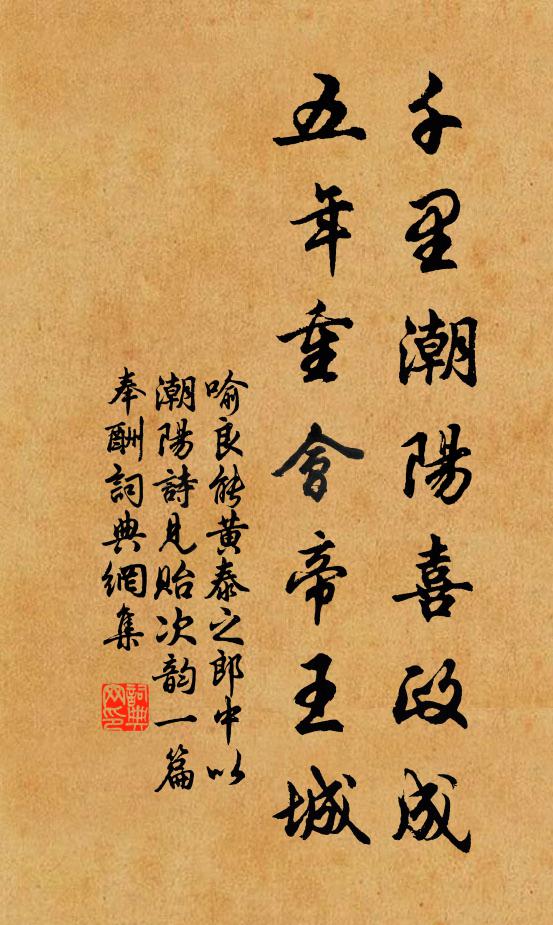 千里潮陽喜政成
五年重會帝王城
喻良能黄泰之郎中以
潮陽詩見貽次韵一篇
奉酬詞典網集
詞典网印